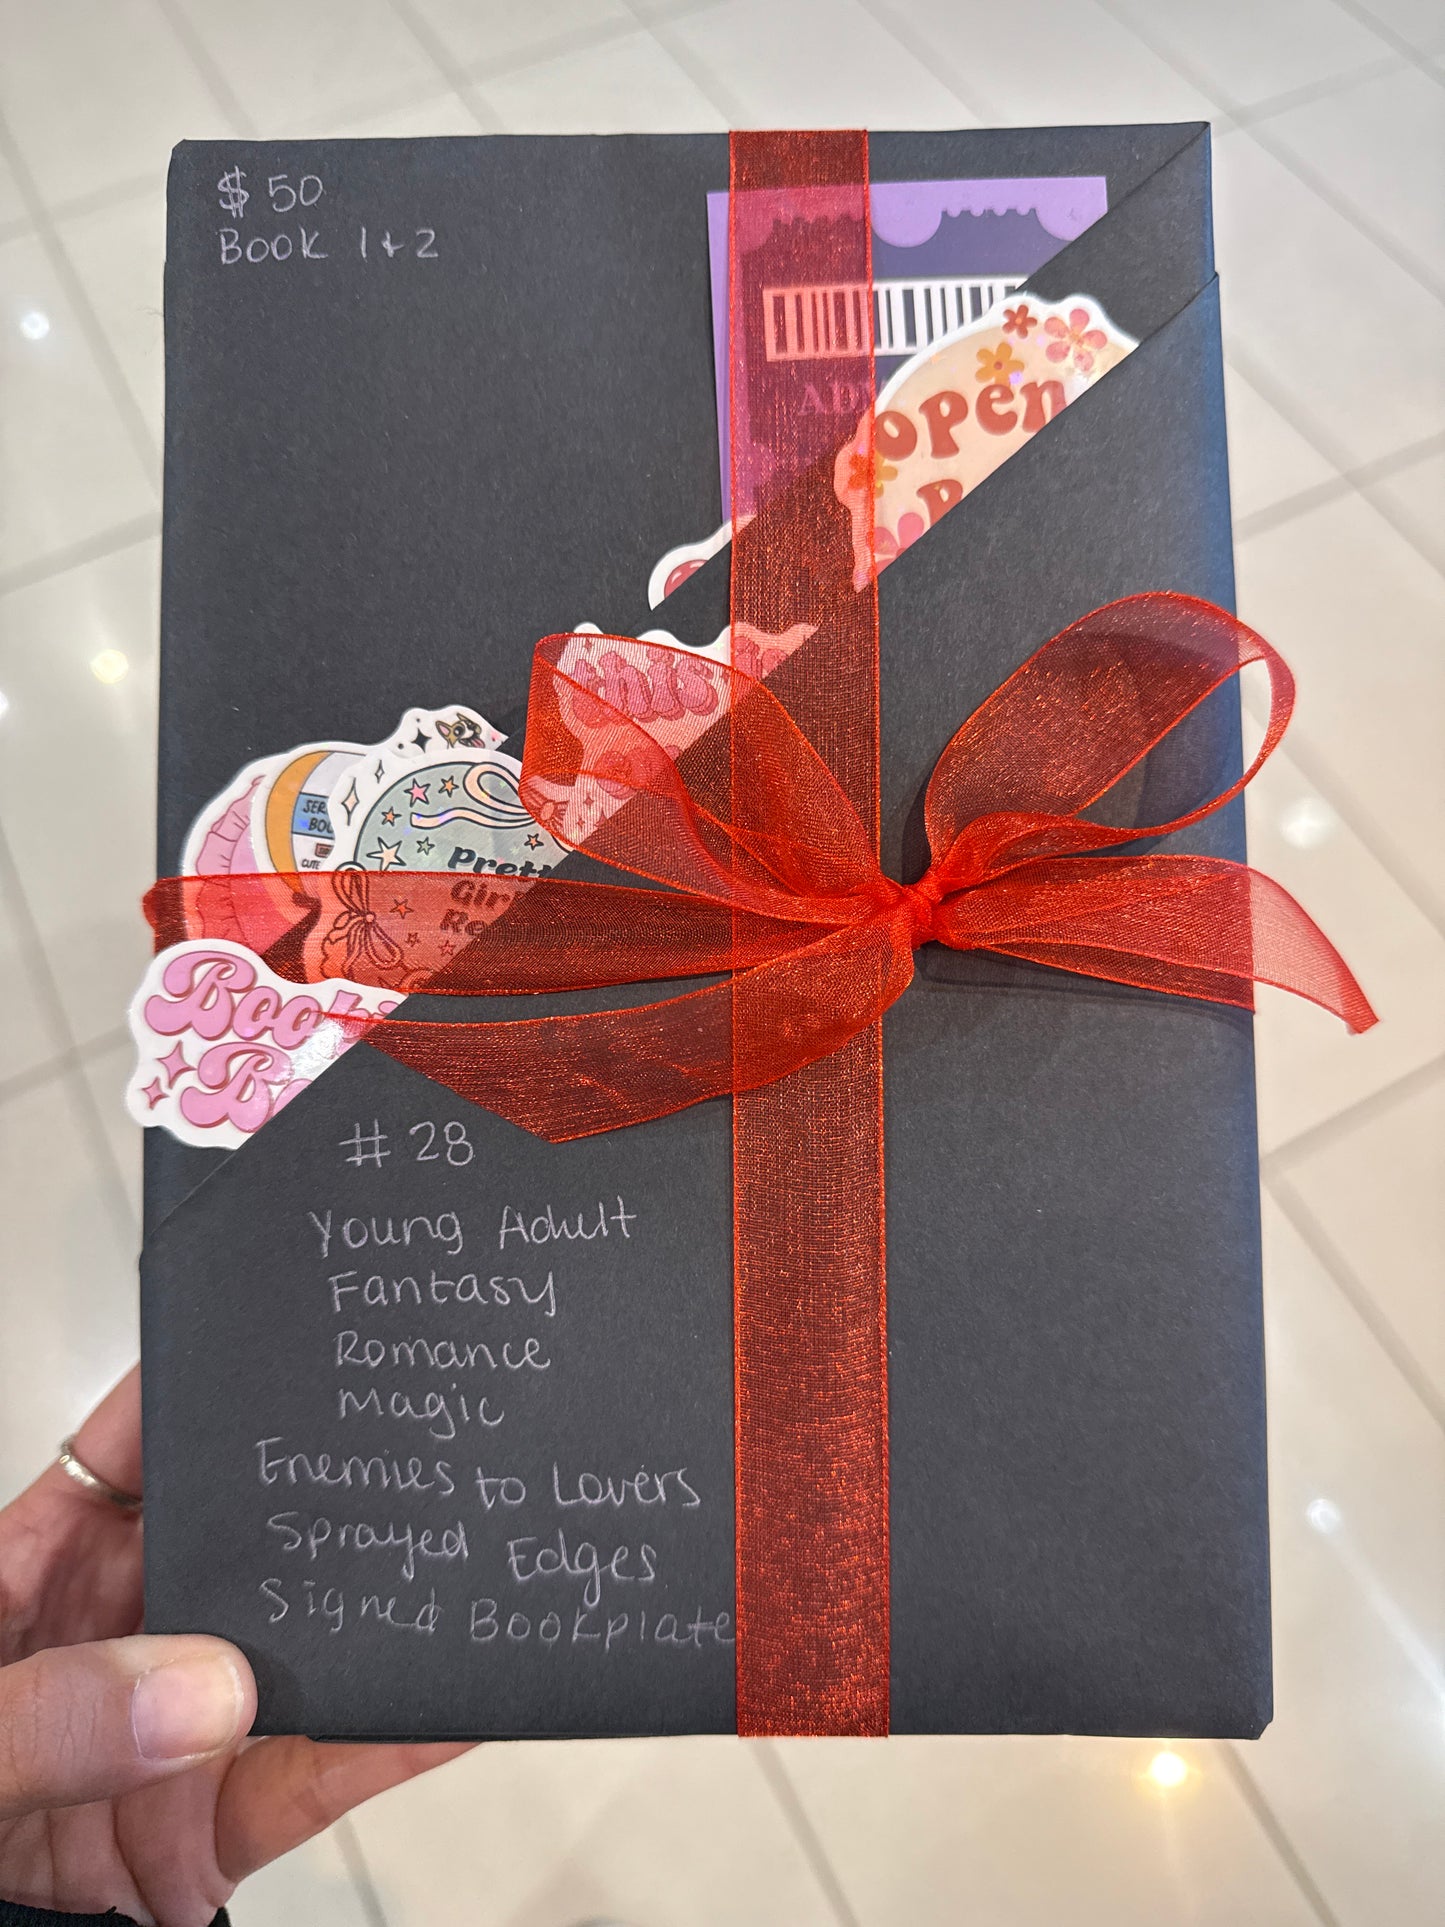 $ 50
Book 1 + 2
open
this
SER
BOO
CUTE
Prett
Gir
Re
# 28
Young Adult
Fantasy
Romance
Magic
Enemies to Lovers
Sprayed Edges
Signed Bookplate